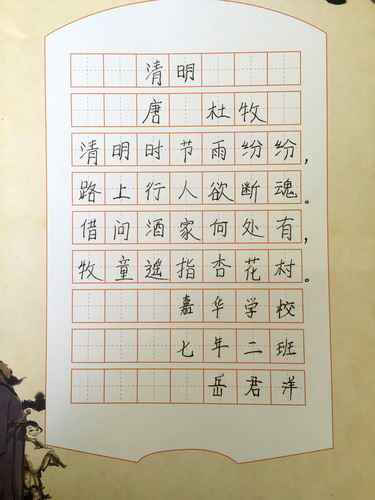 清明
唐 杜牧
清明时节雨纷纷，
路上行人欲断魂。
借问酒家何处有，
牧童遥指杏花村。
嘉华学校
七年二班
岳君洋